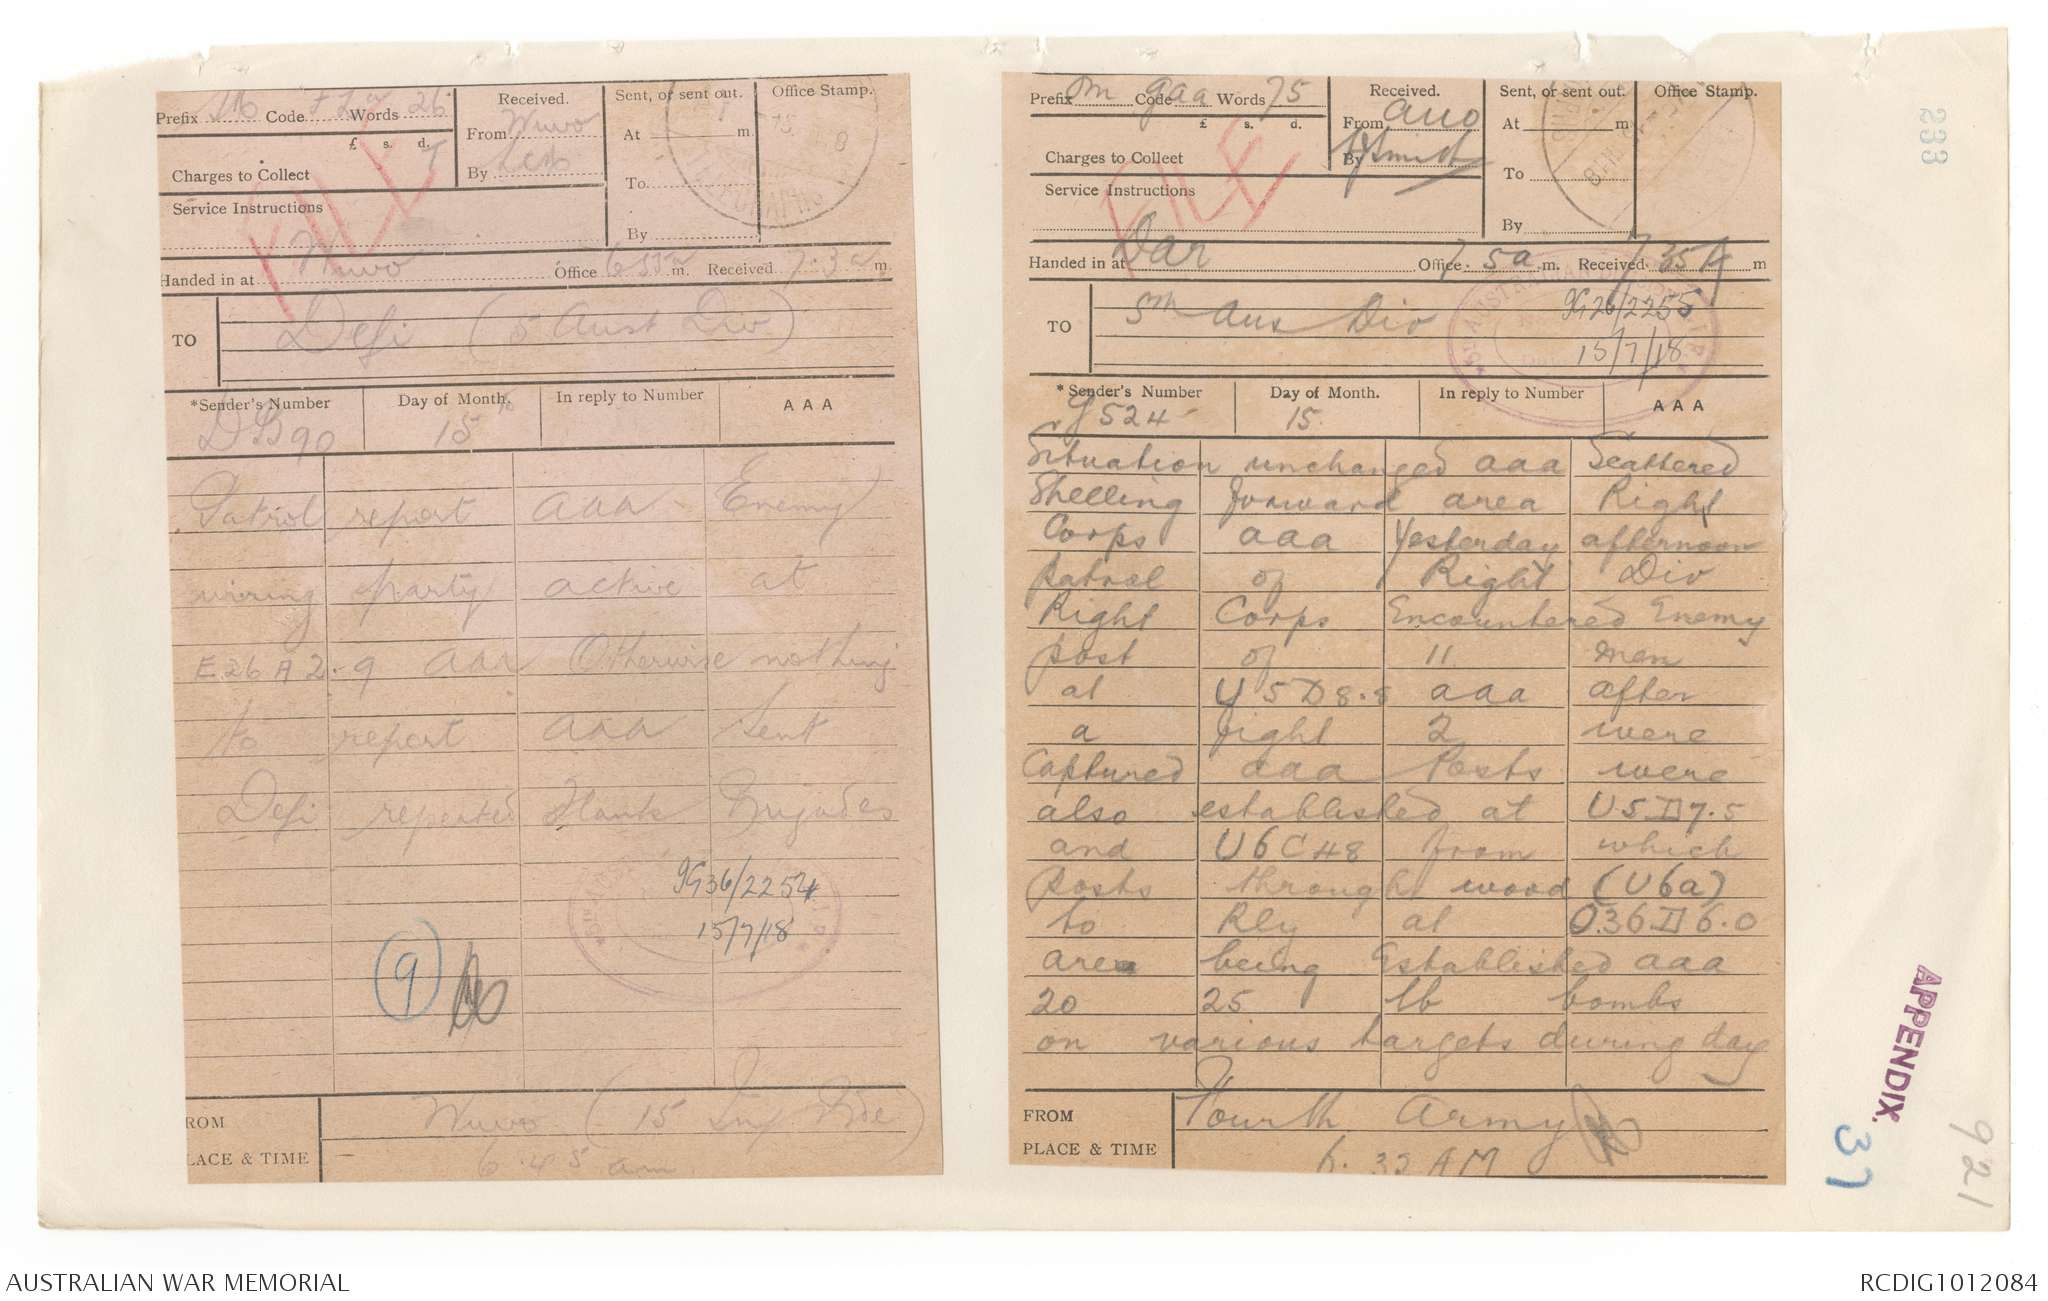 Prefix Code Words 26
£ s. d.
Charges to Collect
Service Instructions
Received.
From Wuvo
By
Sent, or sent out.
At m.
To
By
Office Stamp.
FILE
Handed in at Wuvo Office 6 55a m. Received 7.3a m.
TO Defi (5 Aust Div)
*Sender's Number Day of Month In reply to Number AAA
DB90 15th
Patrol report aaa Enemy
wiring party active at
E.26 A 2.9 aaa Otherwise nothing
to report aaa Sent
Defi repeated Flank Brigades
9G36/2254
15/7/18
9
ROM Wuvo (15 Inf Bde)
LACE & TIME 6.45 am
Prefix Sm Code gaa Words 75
£ s. d.
Charges to Collect
Service Instructions
Received.
From
By Smith
Sent, or sent out.
At m
To
By
Office Stamp.
FILE
Handed in at Dar Office 7.5a m. Received 7.35A m
TO 5th Aus Div 9G26/2255
15/7/18
*Sender's Number Day of Month. In reply to Number AAA
G524 15
Situation unchanged aaa Scattered
Shelling forward area Right
Corps aaa Yesterday afternoon
patrol of Right Div
Right Corps Encountered Enemy
post of 11 men
at U5D8.8 aaa after
a fight 2 were
Captured aaa Posts were
also established at U5D7.5
and U6C48 from which
posts through wood (U6a)
to Rly at O36D6.0
are being Established aaa
20 25 lb bombs
on various targets during day
FROM Fourth Army
PLACE & TIME 6.32 AM
233
APPENDIX.
37
921
AUSTRALIAN WAR MEMORIAL
RCDIG1012084